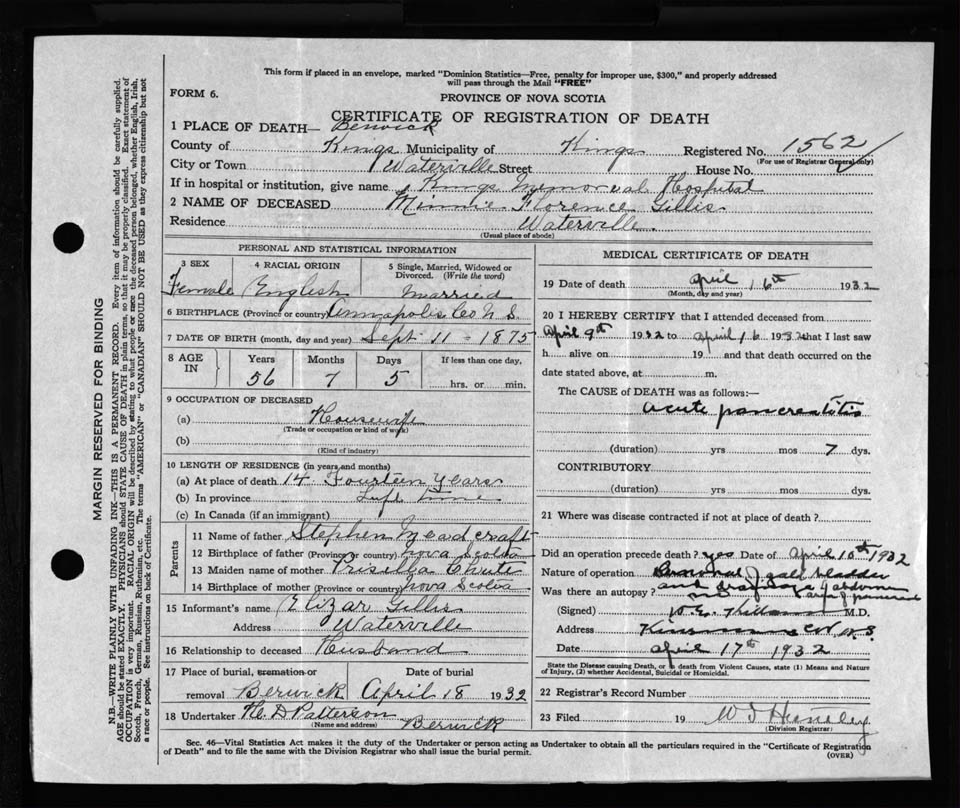 This form if placed in an envelope, marked "Dominion Statistics—Free, penalty for improper use, $300," and properly addressed
will pass through the Mail "FREE"
FORM 6.
PROVINCE OF NOVA SCOTIA
CERTIFICATE OF REGISTRATION OF DEATH
1 PLACE OF DEATH— Berwick
County of Kings Municipality of Kings Registered No. 1562
(For use of Registrar General only)
City or Town Waterville Street House No.
If in hospital or institution, give name Kings Memorial Hospital
2 NAME OF DECEASED Minnie Florence Gillis
Residence Waterville.
(Usual place of abode)
PERSONAL AND STATISTICAL INFORMATION
3 SEX 4 RACIAL ORIGIN 5 Single, Married, Widowed or Divorced. (Write the word)
Female English Married
6 BIRTHPLACE (Province or country) Annapolis Co N.S.
7 DATE OF BIRTH (month, day and year) Sept 11 - 1875
8 AGE IN Years Months Days If less than one day,
56 7 5 hrs. or min.
9 OCCUPATION OF DECEASED
(a) Housewife
(Trade or occupation or kind of work)
(b)
(Kind of industry)
10 LENGTH OF RESIDENCE (in years and months)
(a) At place of death 14 Fourteen Years
(b) In province Life time
(c) In Canada (if an immigrant)
Parents
11 Name of father Stephen
12 Birthplace of father (Province or country) Nova Scotia
13 Maiden name of mother Prisilla Chute
14 Birthplace of mother (Province or country) Nova Scotia
15 Informant's name Elizar Gillis
Address Waterville
16 Relationship to deceased Husband
17 Place of burial, cremation or removal Date of burial
Berwick April 18 1932
18 Undertaker H. D Patterson Berwick
(Name and address)
MEDICAL CERTIFICATE OF DEATH
19 Date of death April 16th 1932
(Month, day and year)
20 I HEREBY CERTIFY that I attended deceased from
April 9th 1932 to April 16 1932 that I last saw
h alive on 19 and that death occurred on the
date stated above, at m.
The CAUSE OF DEATH was as follows:—
acute pancreatitis
(duration) yrs mos 7 dys.
CONTRIBUTORY
(duration) yrs mos dys.
21 Where was disease contracted if not at place of death?
Did an operation precede death? yes Date of April 10th 1932
Nature of operation Removal of gall bladder
and drainage of
Was there an autopsy? no
(Signed) M.D.
Address
Date April 17th 1932
State the Disease causing Death, or in death from Violent Causes, state (1) Means and Nature
of Injury, (2) whether Accidental, Suicidal or Homicidal.
22 Registrar's Record Number
23 Filed 19
(Division Registrar)
Sec. 46—Vital Statistics Act makes it the duty of the Undertaker or person acting as Undertaker to obtain all the particulars required in the "Certificate of Registration
of Death" and to file the same with the Division Registrar who shall issue the burial permit.
(OVER)
MARGIN RESERVED FOR BINDING
N.B.—WRITE PLAINLY WITH UNFADING INK—THIS IS A PERMANENT RECORD. Every item of information should be carefully supplied.
AGE should be stated EXACTLY. PHYSICIANS should STATE CAUSE OF DEATH in plain terms, so that it may be properly classified. Exact statement of
OCCUPATION is very important. RACIAL ORIGIN will be described by stating to what people or race the deceased person belonged, whether English, Irish,
Scotch, French, German, Russian, Ruthenian, etc. The terms "AMERICAN" or "CANADIAN" SHOULD NOT BE USED as they express citizenship but not
a race or people. See instructions on back of Certificate.